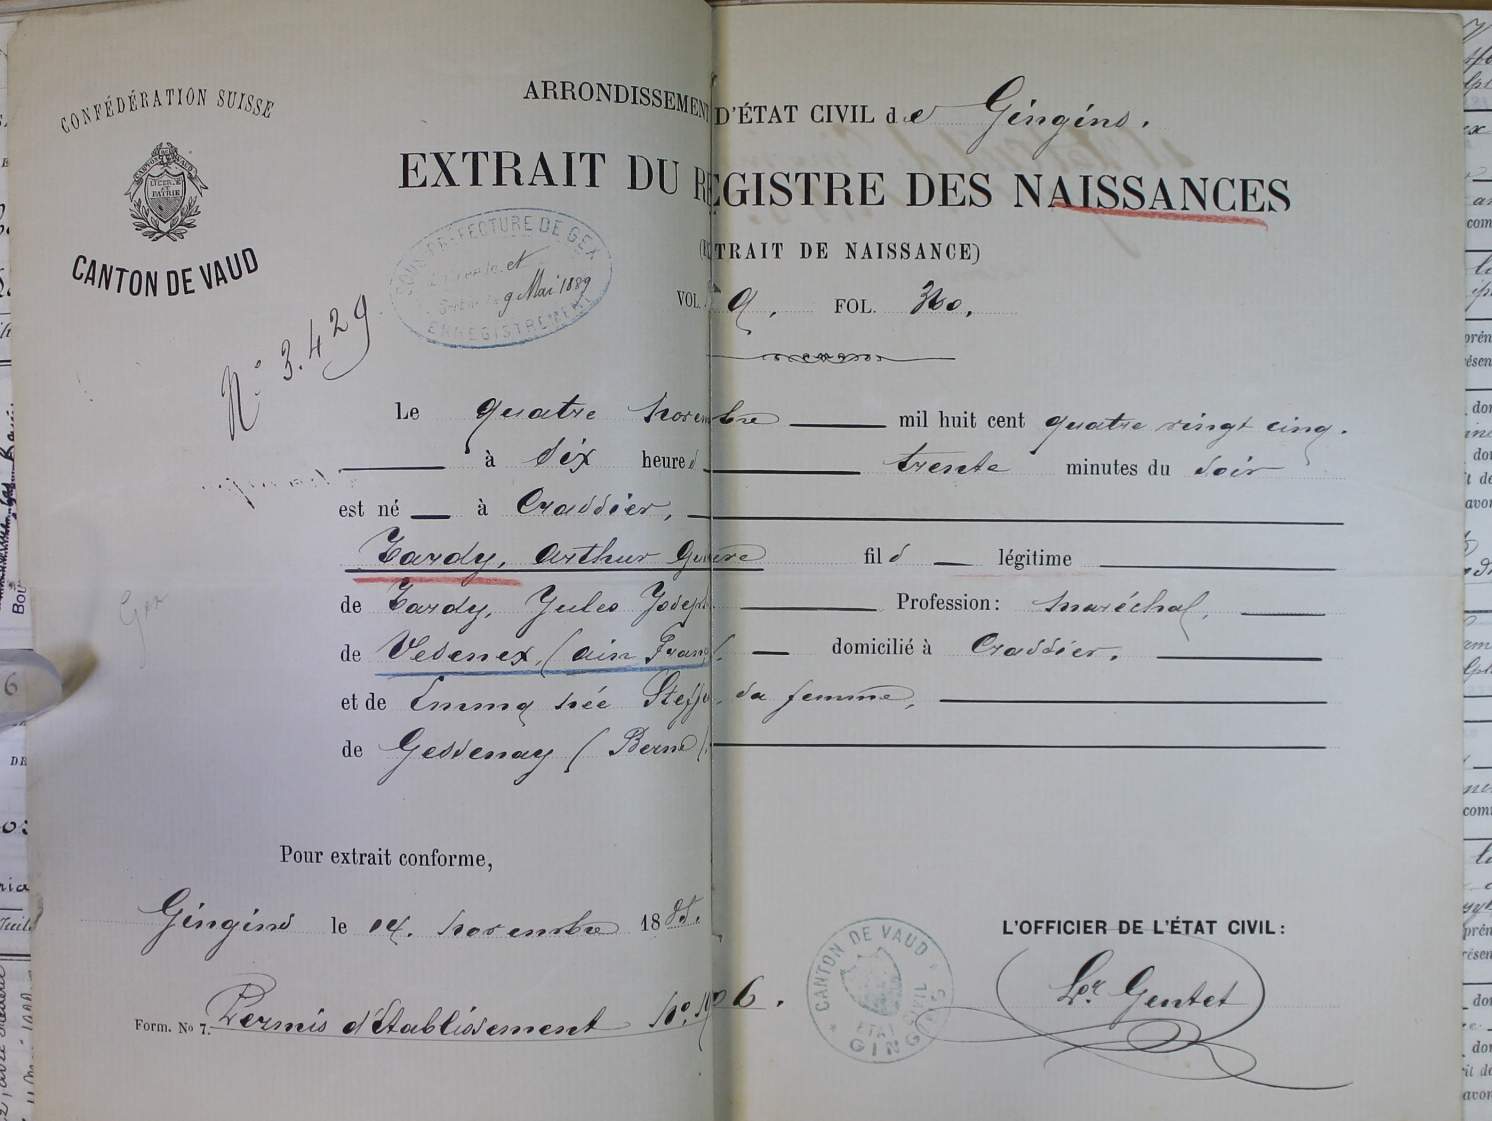 CONFÉDÉRATION SUISSE
LIBERTÉ ET PATRIE
CANTON DE VAUD
ARRONDISSEMENT D'ÉTAT CIVIL de Gingins.
EXTRAIT DU REGISTRE DES NAISSANCES
(EXTRAIT DE NAISSANCE)
SOUS-PRÉFECTURE DE GEX
9 Mai 1889
ENREGISTREMENT
VOL. 9. FOL. 320.
No 3.429
Le quatre novembre mil huit cent quatre vingt cinq.
à six heures trente minutes du soir
est né à Crassier,
Tardy, Arthur fils légitime
de Tardy, Jules Joseph Profession: maréchal,
Gex
de Vesenex, (Ain France). domicilié à Crassier.
et de Emma née sa femme,
de Gessenay (Berne).
Pour extrait conforme,
Gingins le 14. novembre 1885.
L'OFFICIER DE L'ÉTAT CIVIL:
Ls. Gentet
CANTON DE VAUD
ETAT CIVIL
GINGINS
Form. No 7. Permis d'établissement No.